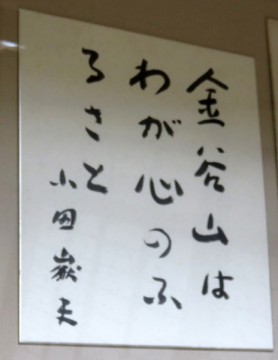 金谷山は
わが心のふ
るさと
小田嶽夫